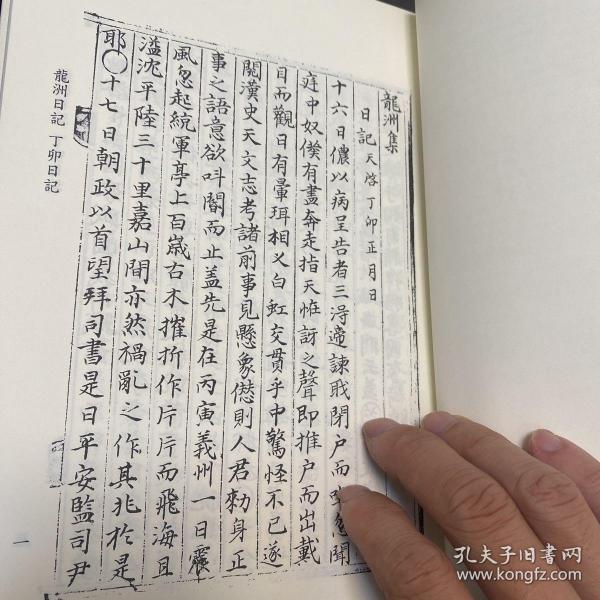 龍洲集
日記 天啓丁卯正月日
十六日儂以病呈告者三淂逓諫職閉户而坐忽聞
庭中奴僕有晝奔走指天恠訝之聲即推户而出戴
目而觀日有暈珥相乂白虹交貫乎中驚怪不已遂
閲漢史天文志考諸前事見懸象儊則人君勑身正
事之語意欲呌閽而止盖先是在丙寅義州一日震
風忽起統軍亭上百歲古木摧折作片片而飛海且
溢沈平陸三十里嘉山間亦然禍亂之作其兆於是
耶〇十七日朝政以首望拜司書是日平安監司尹
龍洲日記 丁卯日記
一
孔夫子旧書网
www.kongfz.com